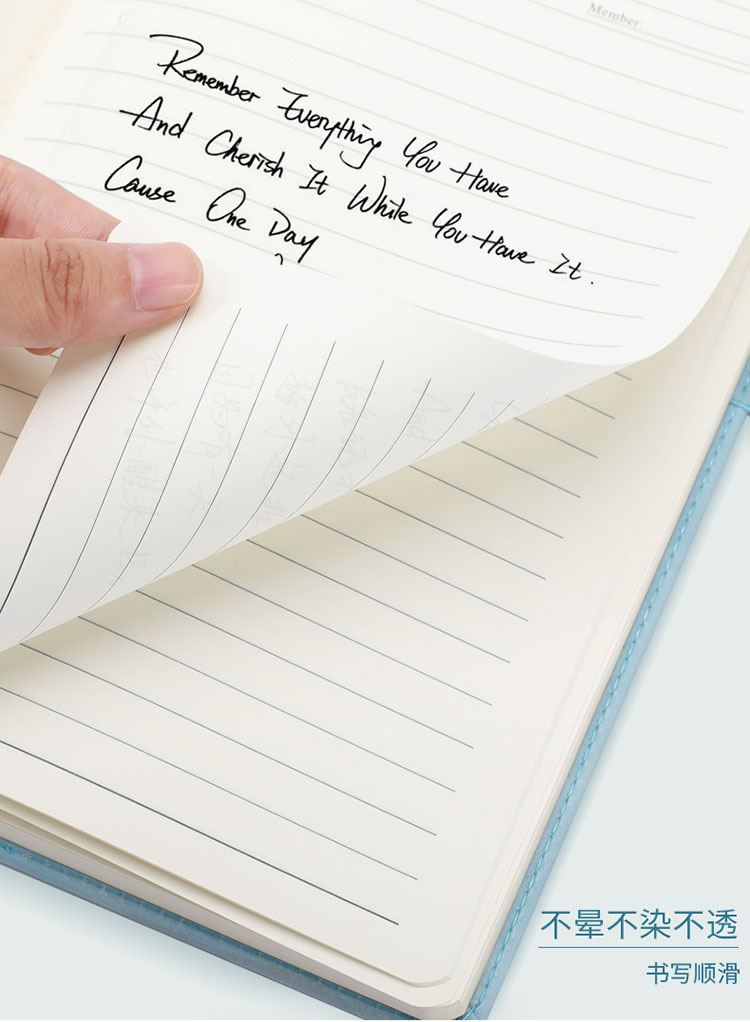 Member:
Remember Everything You Have
And Cherish It While You Have It.
Cause One Day
不晕不染不透
书写顺滑